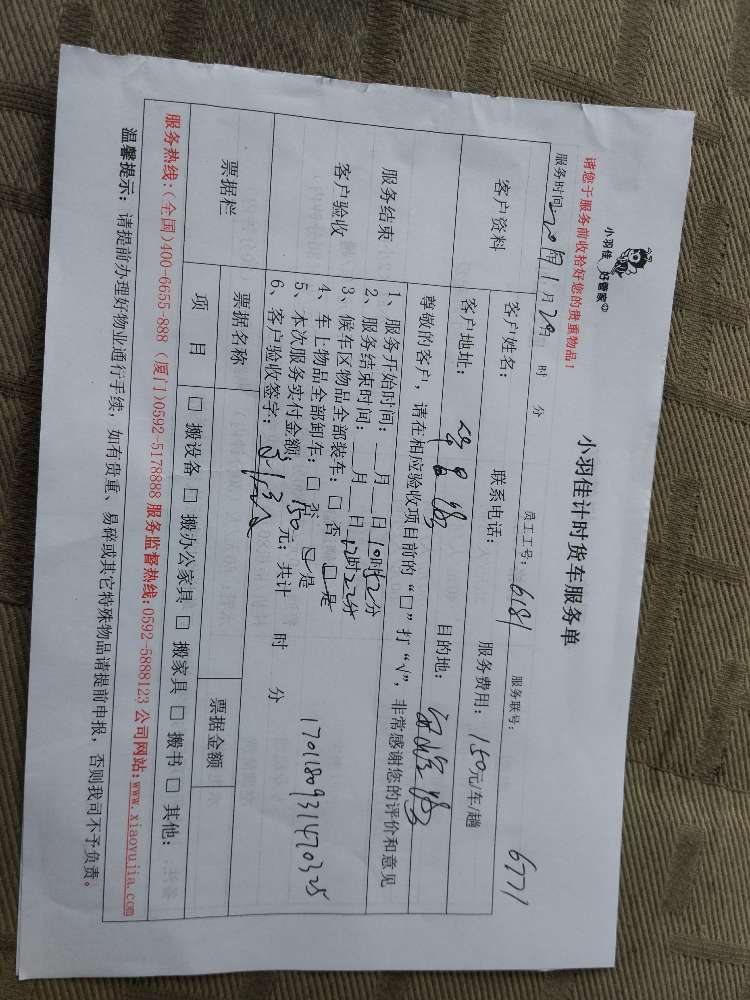 小羽佳 好管家
小羽佳计时货车服务单
请您于服务前收拾好您的贵重物品!
员工工号: 6181 服务联号: 6771
服务时间 年 1月 20日 时 分
客户资料
客户姓名: 联系电话: 服务费用: 150元/车/趟
客户地址: 目的地:
服务结束
客户验收
尊敬的客户,请在相应验收项目前的“□”打“√”,非常感谢您的评价和意见
1、服务开始时间: 月 日 10时52分
2、服务结束时间: 月 日 12时22分
3、候车区物品全部装车: □ 否 □ 是
4、车上物品全部卸车: □ 否 □ 是
5、本次服务实付金额: 150 元; 共计 时 分
6、客户验收签字:
1701180931470325
票据栏
票据名称 票据金额
项 目 □ 搬设备 □ 搬办公家具 □ 搬家具 □ 搬书 □ 其他:
服务热线:(全国)400-6655-888 (厦门)0592-5178888 服务监督热线:0592-5888123 公司网站:www.xiaoyujia.com
温馨提示: 请提前办理好物业通行手续, 如有贵重、易碎或其它特殊物品请提前申报, 否则我司不予负责。